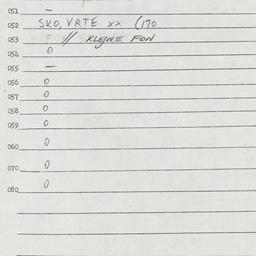 051 —
052 SKO, VRTE xx (170
053 // KLEJNE FON
054 0
055 —
056 0
057 0
058 0
059 0
060 0
070 0
080 0